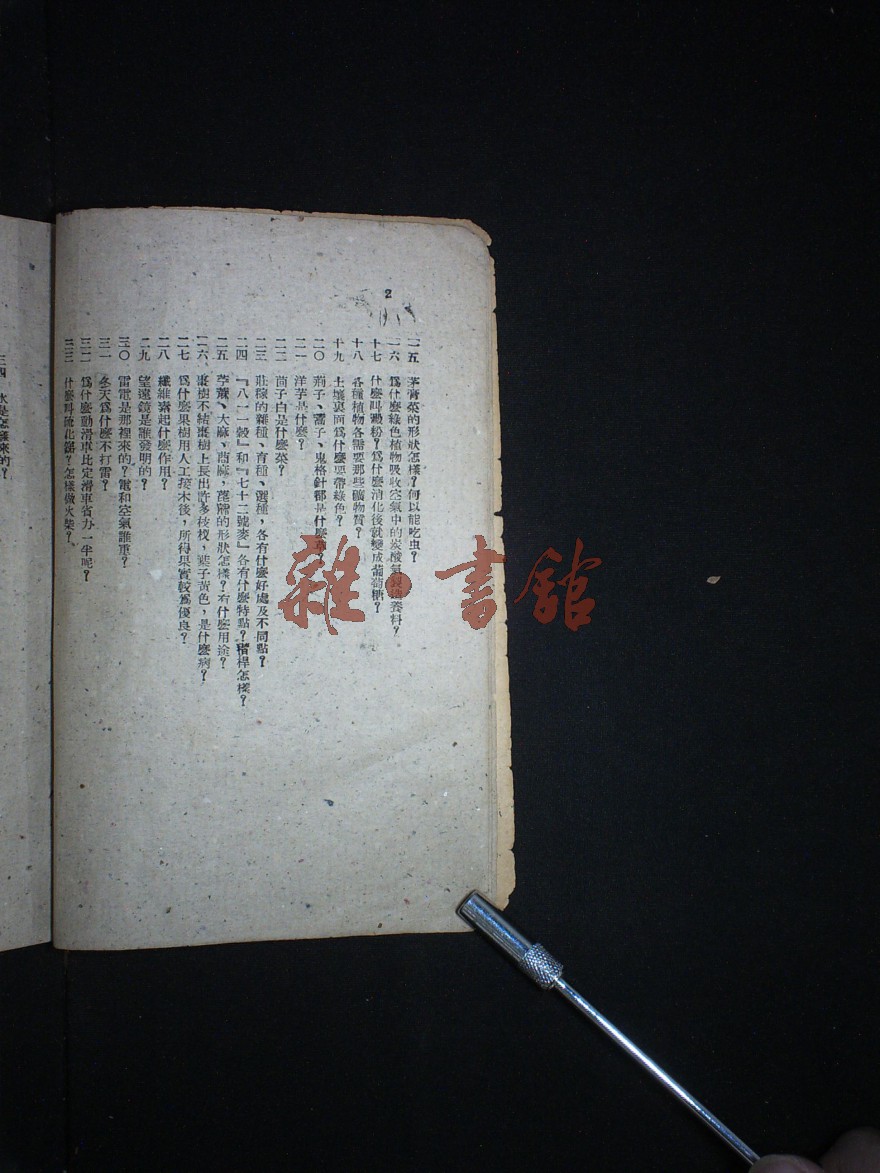 2
一五 茅膏菜的形狀怎樣？何以能吃虫？
一六 爲什麽綠色植物吸收空氣中的炭酸氣製造養料？
十七 什麽叫澱粉？爲什麽消化後就變成葡萄糖？
十八 各種植物各需要那些礦物質？
十九 土壤裏面爲什麽要帶綠色？
二〇 莿子、蒿子、鬼格針都是什麽草？
二一 洋芋是什麽？
二二 茴子白是什麽菜？
二三 莊稼的雜種、育種、選種，各有什麽好處及不同點？
二四 『八一一穀』和『七十二號麥』各有什麽特點？稭桿怎樣？
二五 苧蔴、大麻、萞麻的形狀怎樣？有什麽用途？
二六 棗樹不結棗樹上長出許多枝杈，葉子黃色，是什麽病？
二七 爲什麽果樹用人工接木後，所得果實較爲優良？
二八 纖維素起什麽作用？
二九 望遠鏡是誰發明的？
三〇 雷電是那裡來的？電和空氣誰重？
三一 冬天爲什麽不打雷？
三二 爲什麽動滑車比定滑車省力一半呢？
三三 什麽叫硫化銻？怎樣做火柴？
三四 水是怎樣來的？
雜·書館